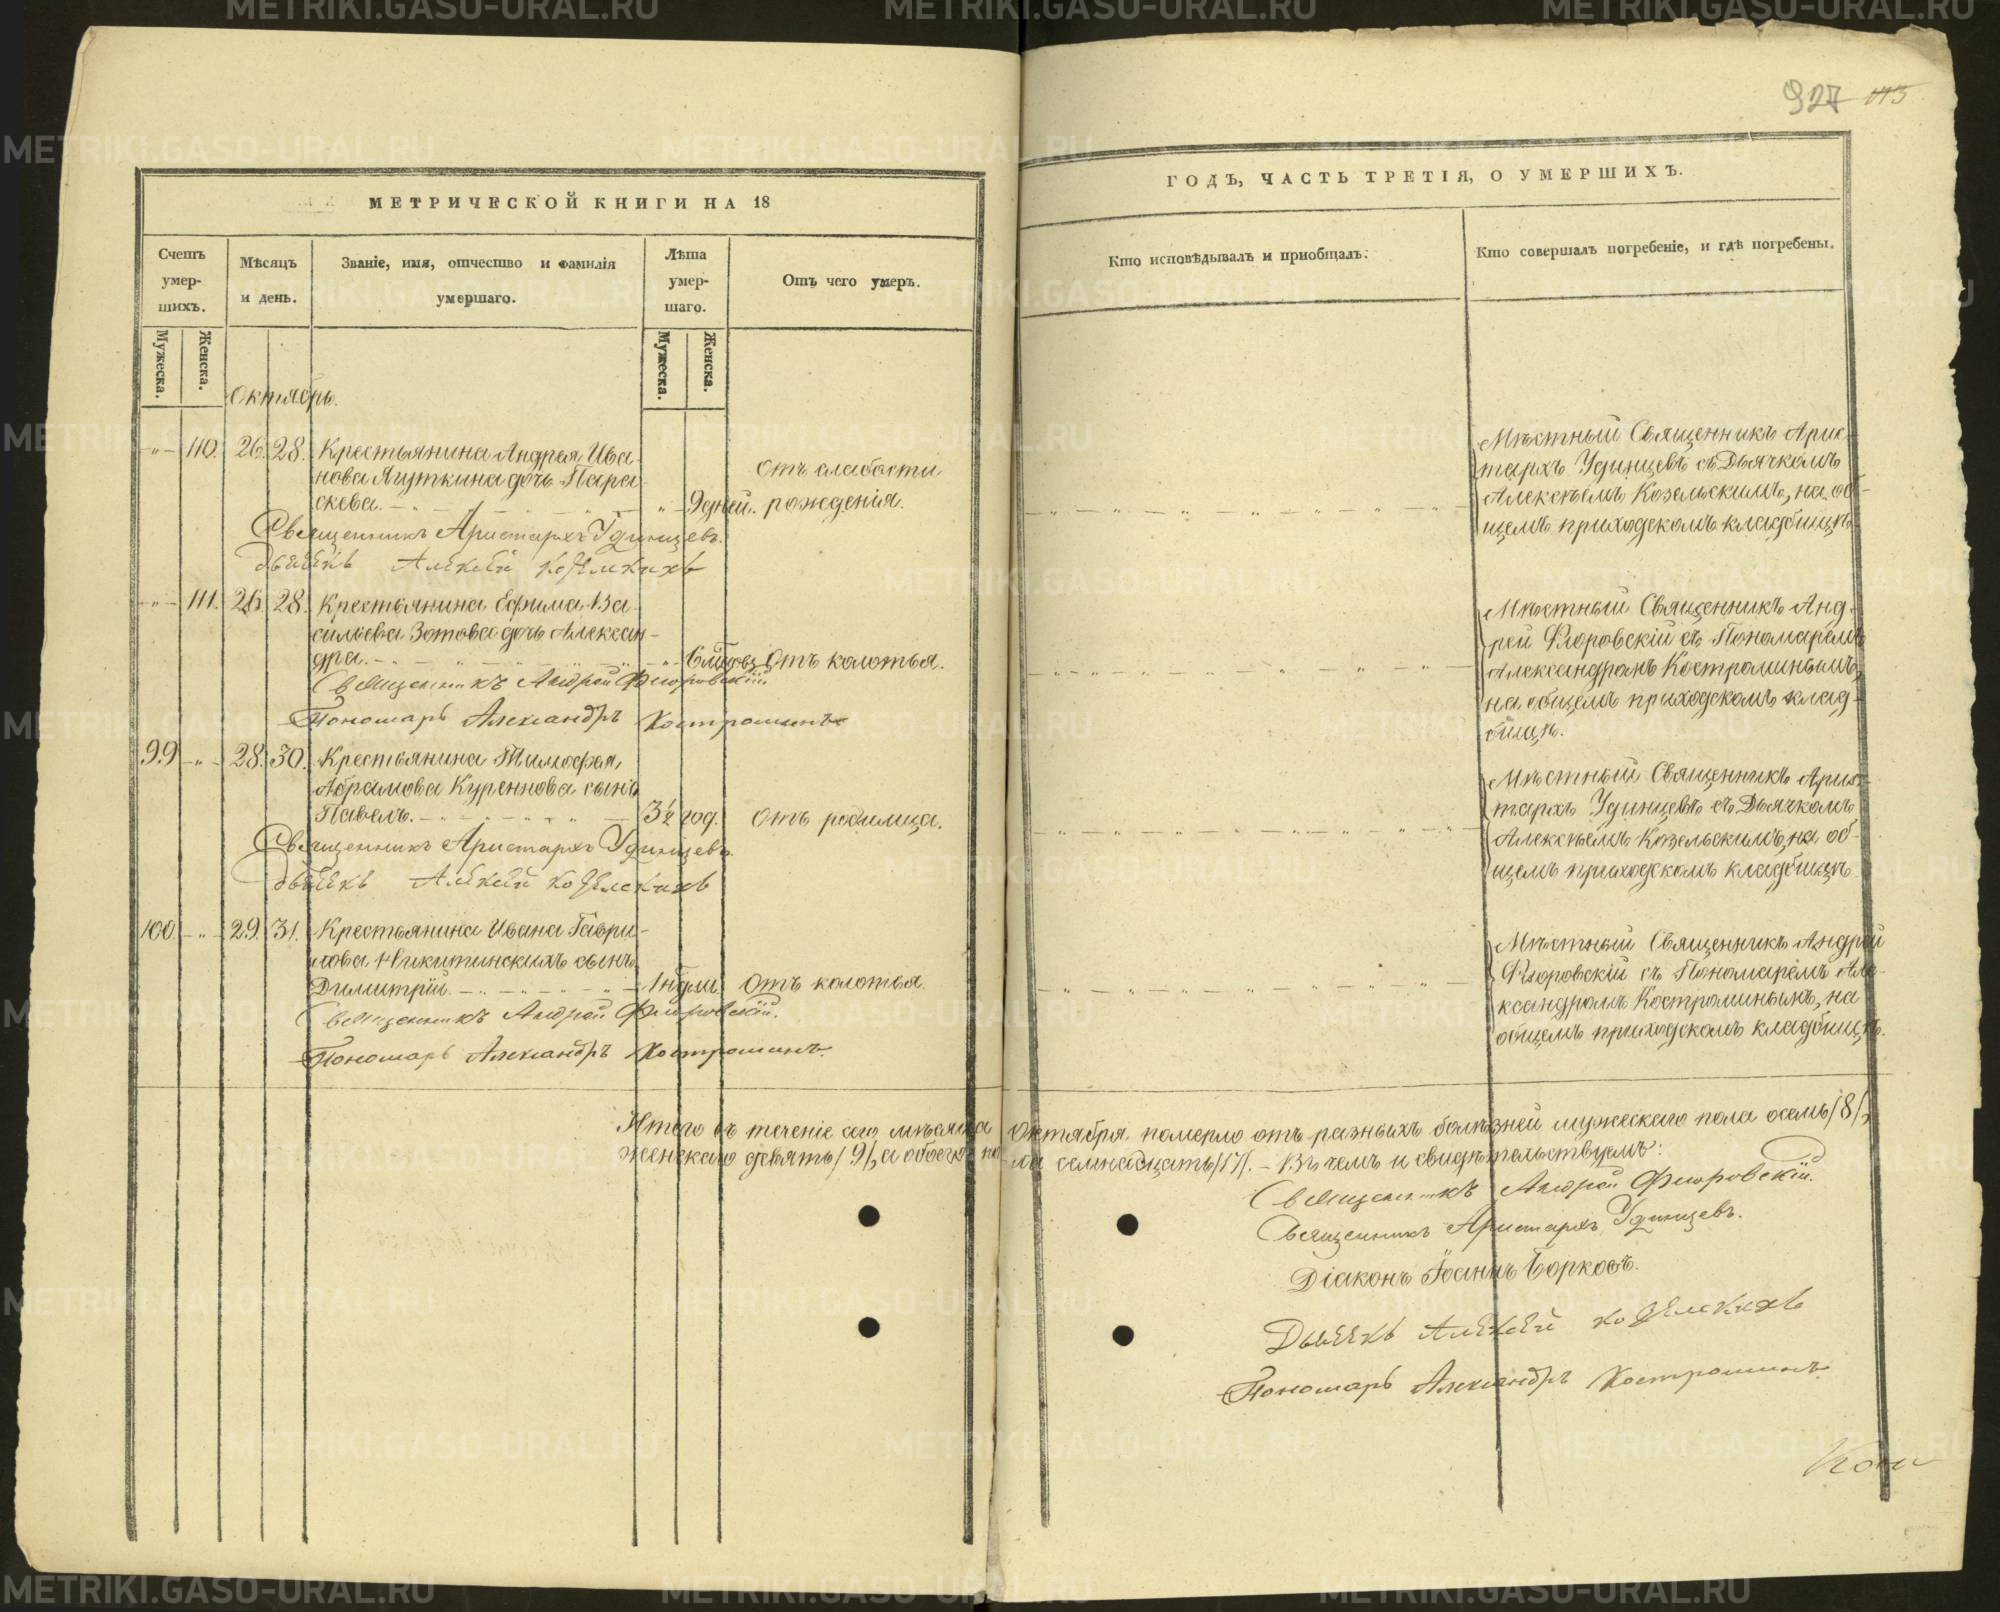 927 113
МЕТРИЧЕСКОЙ КНИГИ НА 18
ГОДЪ, ЧАСТЬ ТРЕТІЯ, О УМЕРШИХЪ.
Счетъ умер-шихъ.
Мужеска.
Женска.
Мѣсяцъ и день.
Званіе, имя, отчество и фамилія
умершаго.
Лѣта умер-шаго.
Мужеска.
Женска.
Отъ чего умеръ.
Кто исповѣдывалъ и пріобщалъ.
Кто совершалъ погребеніе, и гдѣ погребены.
Октябрь.
110. 26. 28. Крестьянина Андрея Ива-
нова Ягуткина дочь Пара-
скева. 9 дней. Отъ слабости
рожденія.
Мѣстный Священникъ Арис-
тархъ Удинцевъ съ Дьячкомъ
Алексѣемъ Козельскимъ, на об-
щемъ приходскомъ кладбищѣ.
Священникъ Аристархъ Удинцевъ.
Дьячекъ Алексей Козелскихъ
111. 26. 28. Крестьянина Ефима Ва-
сильева Зотова дочь Алексан-
дра. Отъ колотья.
Мѣстный Священникъ Анд-
рей Флоровскій съ Пономаремъ
Александромъ Костроминымъ,
на общемъ приходскомъ клад-
бищѣ.
Священникъ Андрей Флоровскій.
Пономарь Александръ Костроминъ
99 28. 30. Крестьянина Тимофея
Абрамова Куреннова сынъ
Павелъ. 3½ год. Отъ родимца.
Мѣстный Священникъ Арис-
тархъ Удинцевъ съ Дьячкомъ
Алексѣемъ Козельскимъ, на об-
щемъ приходскомъ кладбищѣ.
Священникъ Аристархъ Удинцевъ.
Дьячекъ Алексей Козелскихъ
100 29. 31. Крестьянина Ивана Гаври-
лова Никитинскихъ сынъ
Димитрій. 1 нѣдли. Отъ колотья.
Мѣстный Священникъ Андрей
Флоровскій съ Пономаремъ Але-
ксандромъ Костроминымъ, на
общемъ приходскомъ кладбищѣ.
Священникъ Андрей Флоровскій.
Пономарь Александръ Костроминъ.
Итого въ теченіе сего мѣсяца Октября померло отъ разныхъ болѣзней мужескаго пола осемь /8/,
женскаго девять /9/, а обоего пола семнадцать /17/. – Въ чемъ и свидѣтельствуемъ:
Священникъ Андрей Флоровскій.
Священникъ Аристархъ Удинцевъ.
Діаконъ Іоаннъ Борковъ.
Дьячекъ Алексей Козелскихъ
Пономарь Александръ Костроминъ.
METRIKI.GASO-URAL.RU